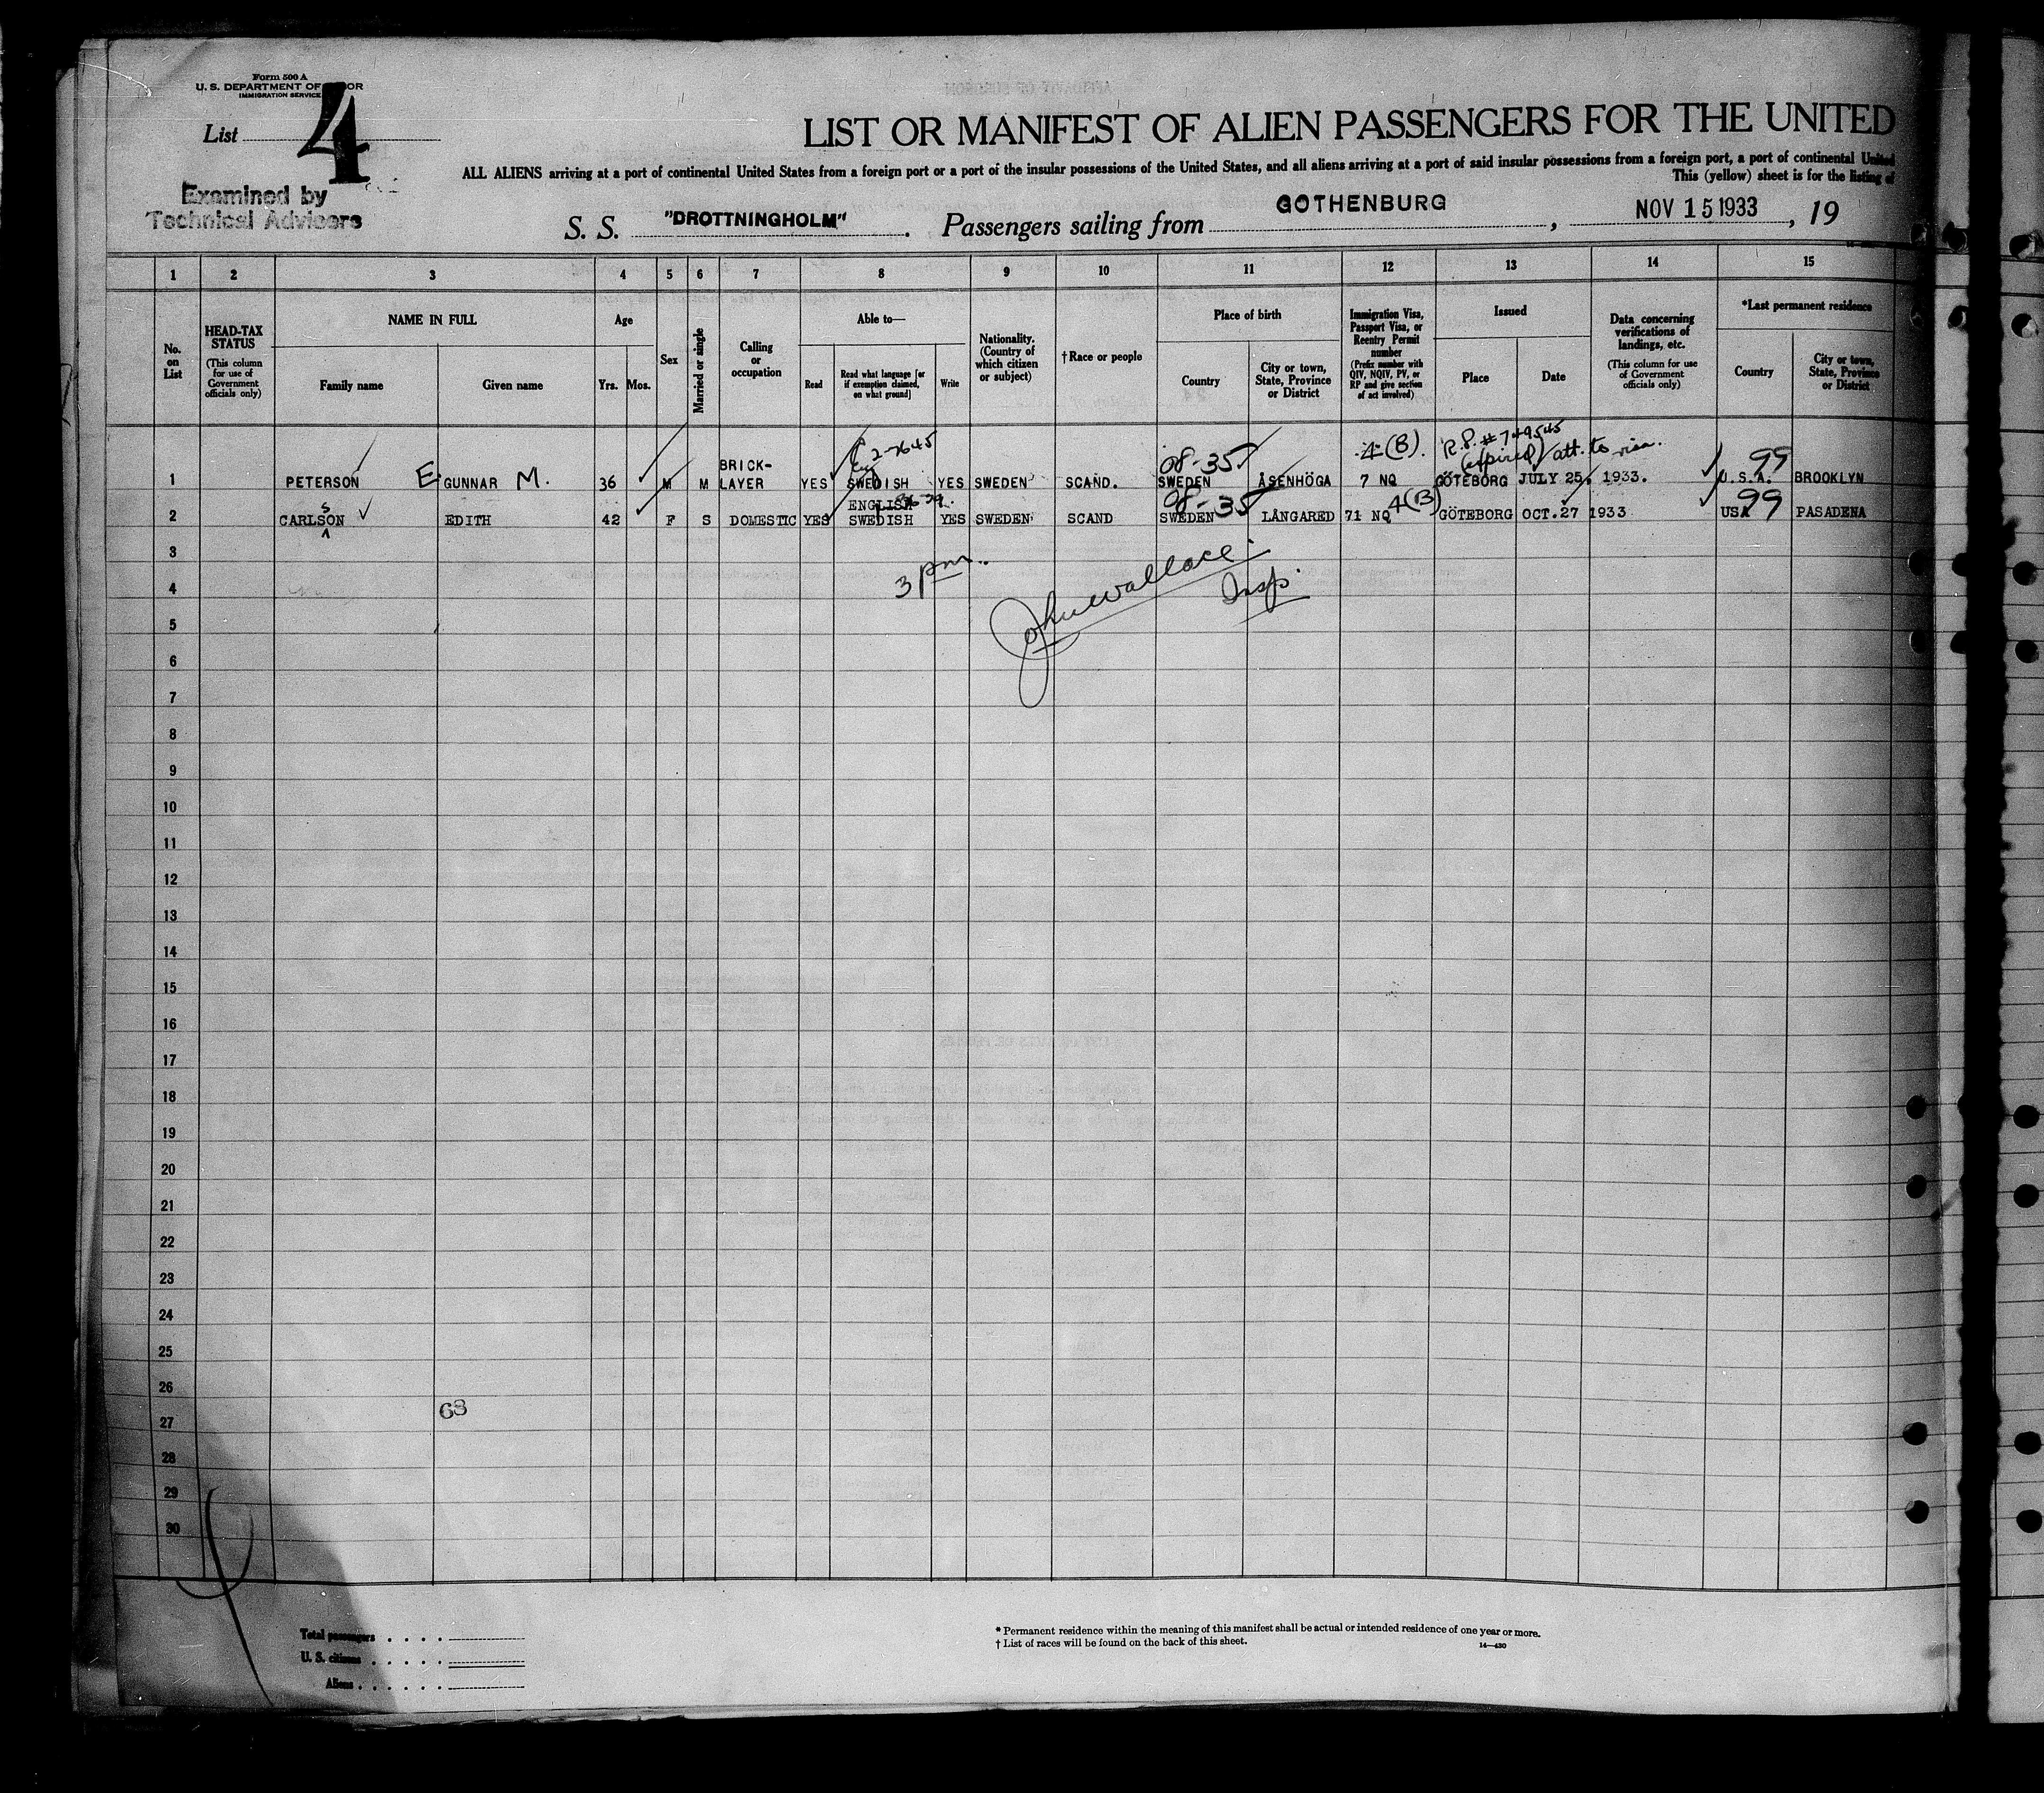 Form 500 A
U. S. DEPARTMENT OF LABOR
IMMIGRATION SERVICE
List 4
Examined by
Technical Advisers
LIST OR MANIFEST OF ALIEN PASSENGERS FOR THE UNITED
ALL ALIENS arriving at a port of continental United States from a foreign port or a port of the insular possessions of the United States, and all aliens arriving at a port of said insular possessions from a foreign port, a port of continental United
This (yellow) sheet is for the listing of
S. S. "DROTTNINGHOLM". Passengers sailing from GOTHENBURG, NOV 15 1933, 19
1 2 3 4 5 6 7 8 9 10 11 12 13 14 15
No. on List
HEAD-TAX STATUS
(This column for use of Government officials only)
NAME IN FULL
Family name
Given name
Age
Yrs. Mos.
Sex
Married or single
Calling or occupation
Able to—
Read
Read what language [or if exemption claimed, on what ground]
Write
Nationality. (Country of which citizen or subject)
†Race or people
Place of birth
Country
City or town, State, Province or District
Immigration Visa, Passport Visa, or Reentry Permit number
(Prefix number with QIV, NQIV, PV, or RP and give section of act involved)
Issued
Place
Date
Data concerning verifications of landings, etc.
(This column for use of Government officials only)
*Last permanent residence
Country
City or town, State, Province or District
2-7645 08-35 4 (B). R.P. # 749545 (expired) att. to visa. 99
1 PETERSON E. GUNNAR M. 36 M M BRICK-LAYER YES Eng SWEDISH YES SWEDEN SCAND. SWEDEN ÅSENHÖGA 7 NQ GÖTEBORG JULY 25. 1933. U.S.A. BROOKLYN
S ENGLISH 08-35 4(B) 99
2 CARLSON EDITH 42 F S DOMESTIC YES SWEDISH YES SWEDEN SCAND SWEDEN LÅNGARED 71 NQ GÖTEBORG OCT.27 1933 USA PASADENA
3
3 pm. John Wallace Insp.
4
5
6
7
8
9
10
11
12
13
14
15
16
17
18
19
20
21
22
23
24
25
26
63
27
28
29
30
Total passengers
U. S. citizens
Aliens
* Permanent residence within the meaning of this manifest shall be actual or intended residence of one year or more.
† List of races will be found on the back of this sheet.
14—430